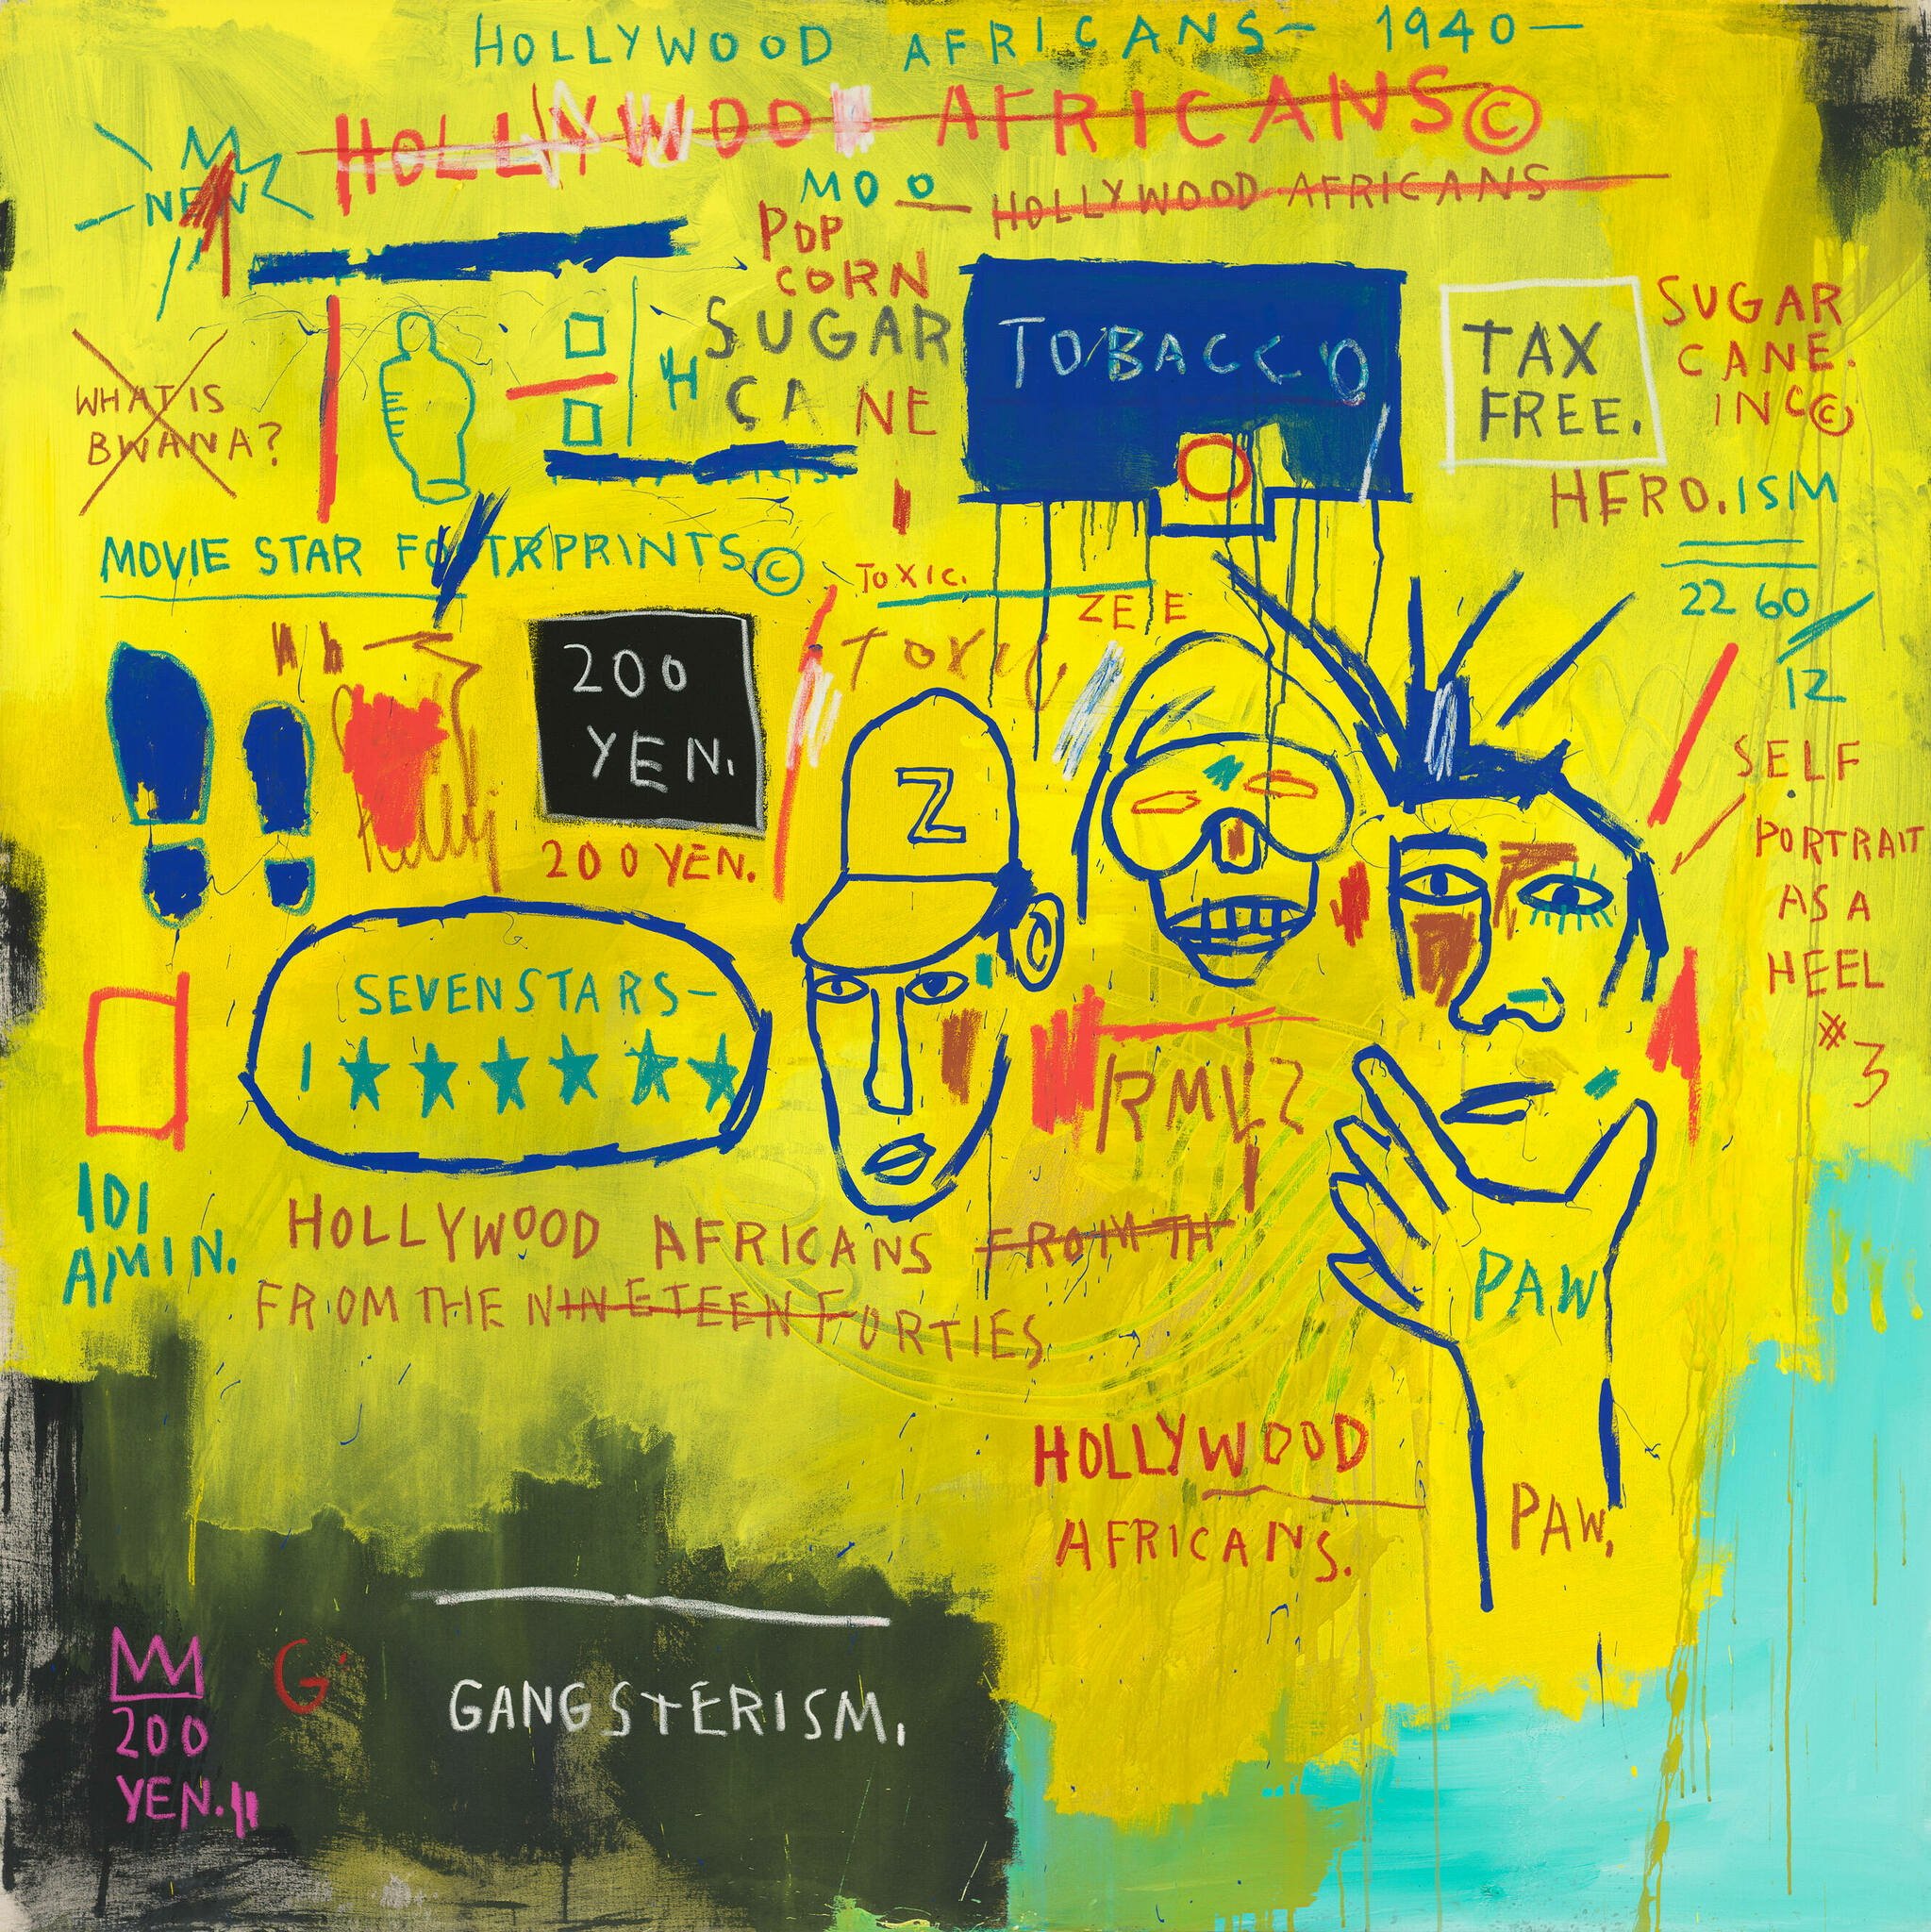 HOLLYWOOD AFRICANS— 1940—
HOLLYWOOD AFRICANS©
NEW
MOO
HOLLYWOOD AFRICANS
POP
CORN
SUGAR
CANE
TOBACCO
TAX
FREE.
SUGAR
CANE.
INC©
WHAT IS
BWANA?
HERO.ISM
MOVIE STAR FOOTPRINTS©
TOXIC.
ZEE
2260
12
200
YEN.
200 YEN.
Z
SELF
PORTRAIT
AS A
HEEL
#3
SEVEN STARS—
RMLZ
IDI
AMIN.
HOLLYWOOD AFRICANS FROM TH
FROM THE NINETEEN FORTIES
PAW
HOLLYWOOD
AFRICANS.
PAW,
G
GANGSTERISM.
200
YEN.